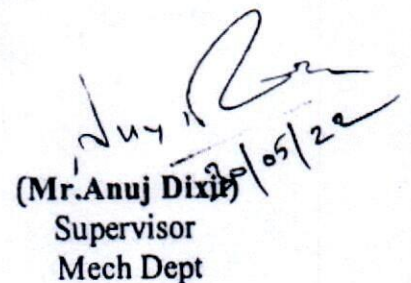 30/05/22
(Mr.Anuj Dixit)
Supervisor
Mech Dept